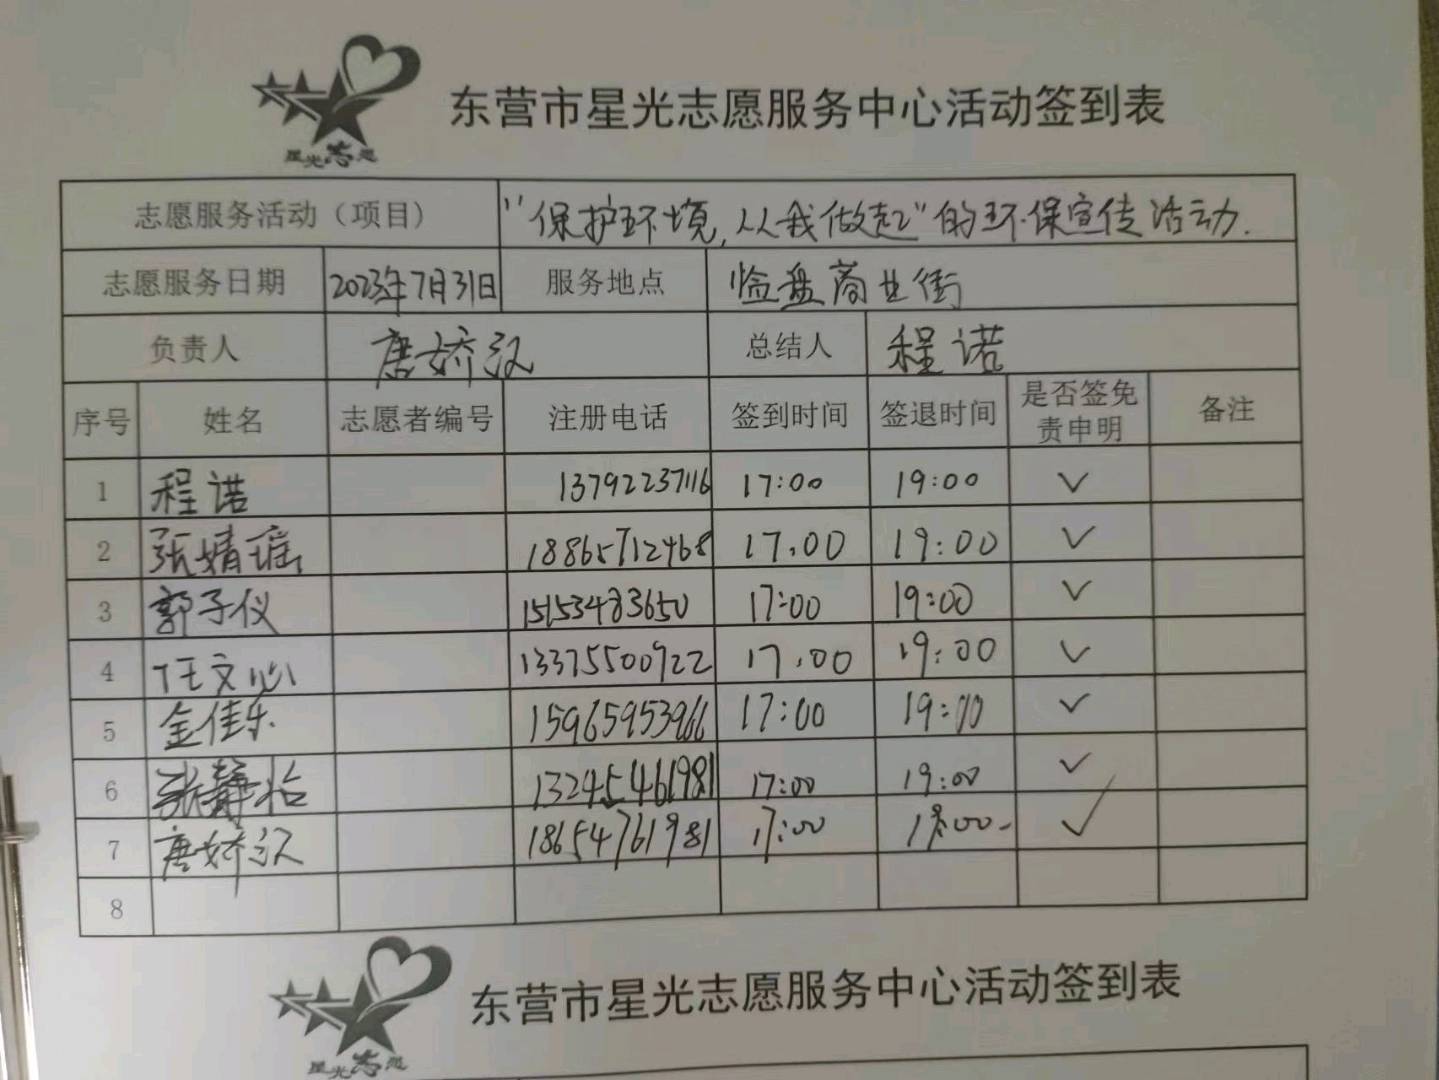 星光志愿
东营市星光志愿服务中心活动签到表
志愿服务活动（项目） "保护环境,从我做起"的环保宣传活动.
志愿服务日期 2023年7月31日 服务地点 临盘商业街
负责人 唐娇汉 总结人 程诺
序号 姓名 志愿者编号 注册电话 签到时间 签退时间 是否签免责申明 备注
1 程诺 13792237116 17:00 19:00 ✓
2 张婧瑶 18865712468 17.00 19:00 ✓
3 郭子仪 15153483650 17:00 19:00 ✓
4 任文心 13375500922 17.00 19:00 ✓
5 金佳乐 15965953966 17:00 19:00 ✓
6 张静怡 13245461981 17:00 19:00 ✓
7 唐娇汉 18654761981 17:00 19:00 ✓
8
星光志愿
东营市星光志愿服务中心活动签到表